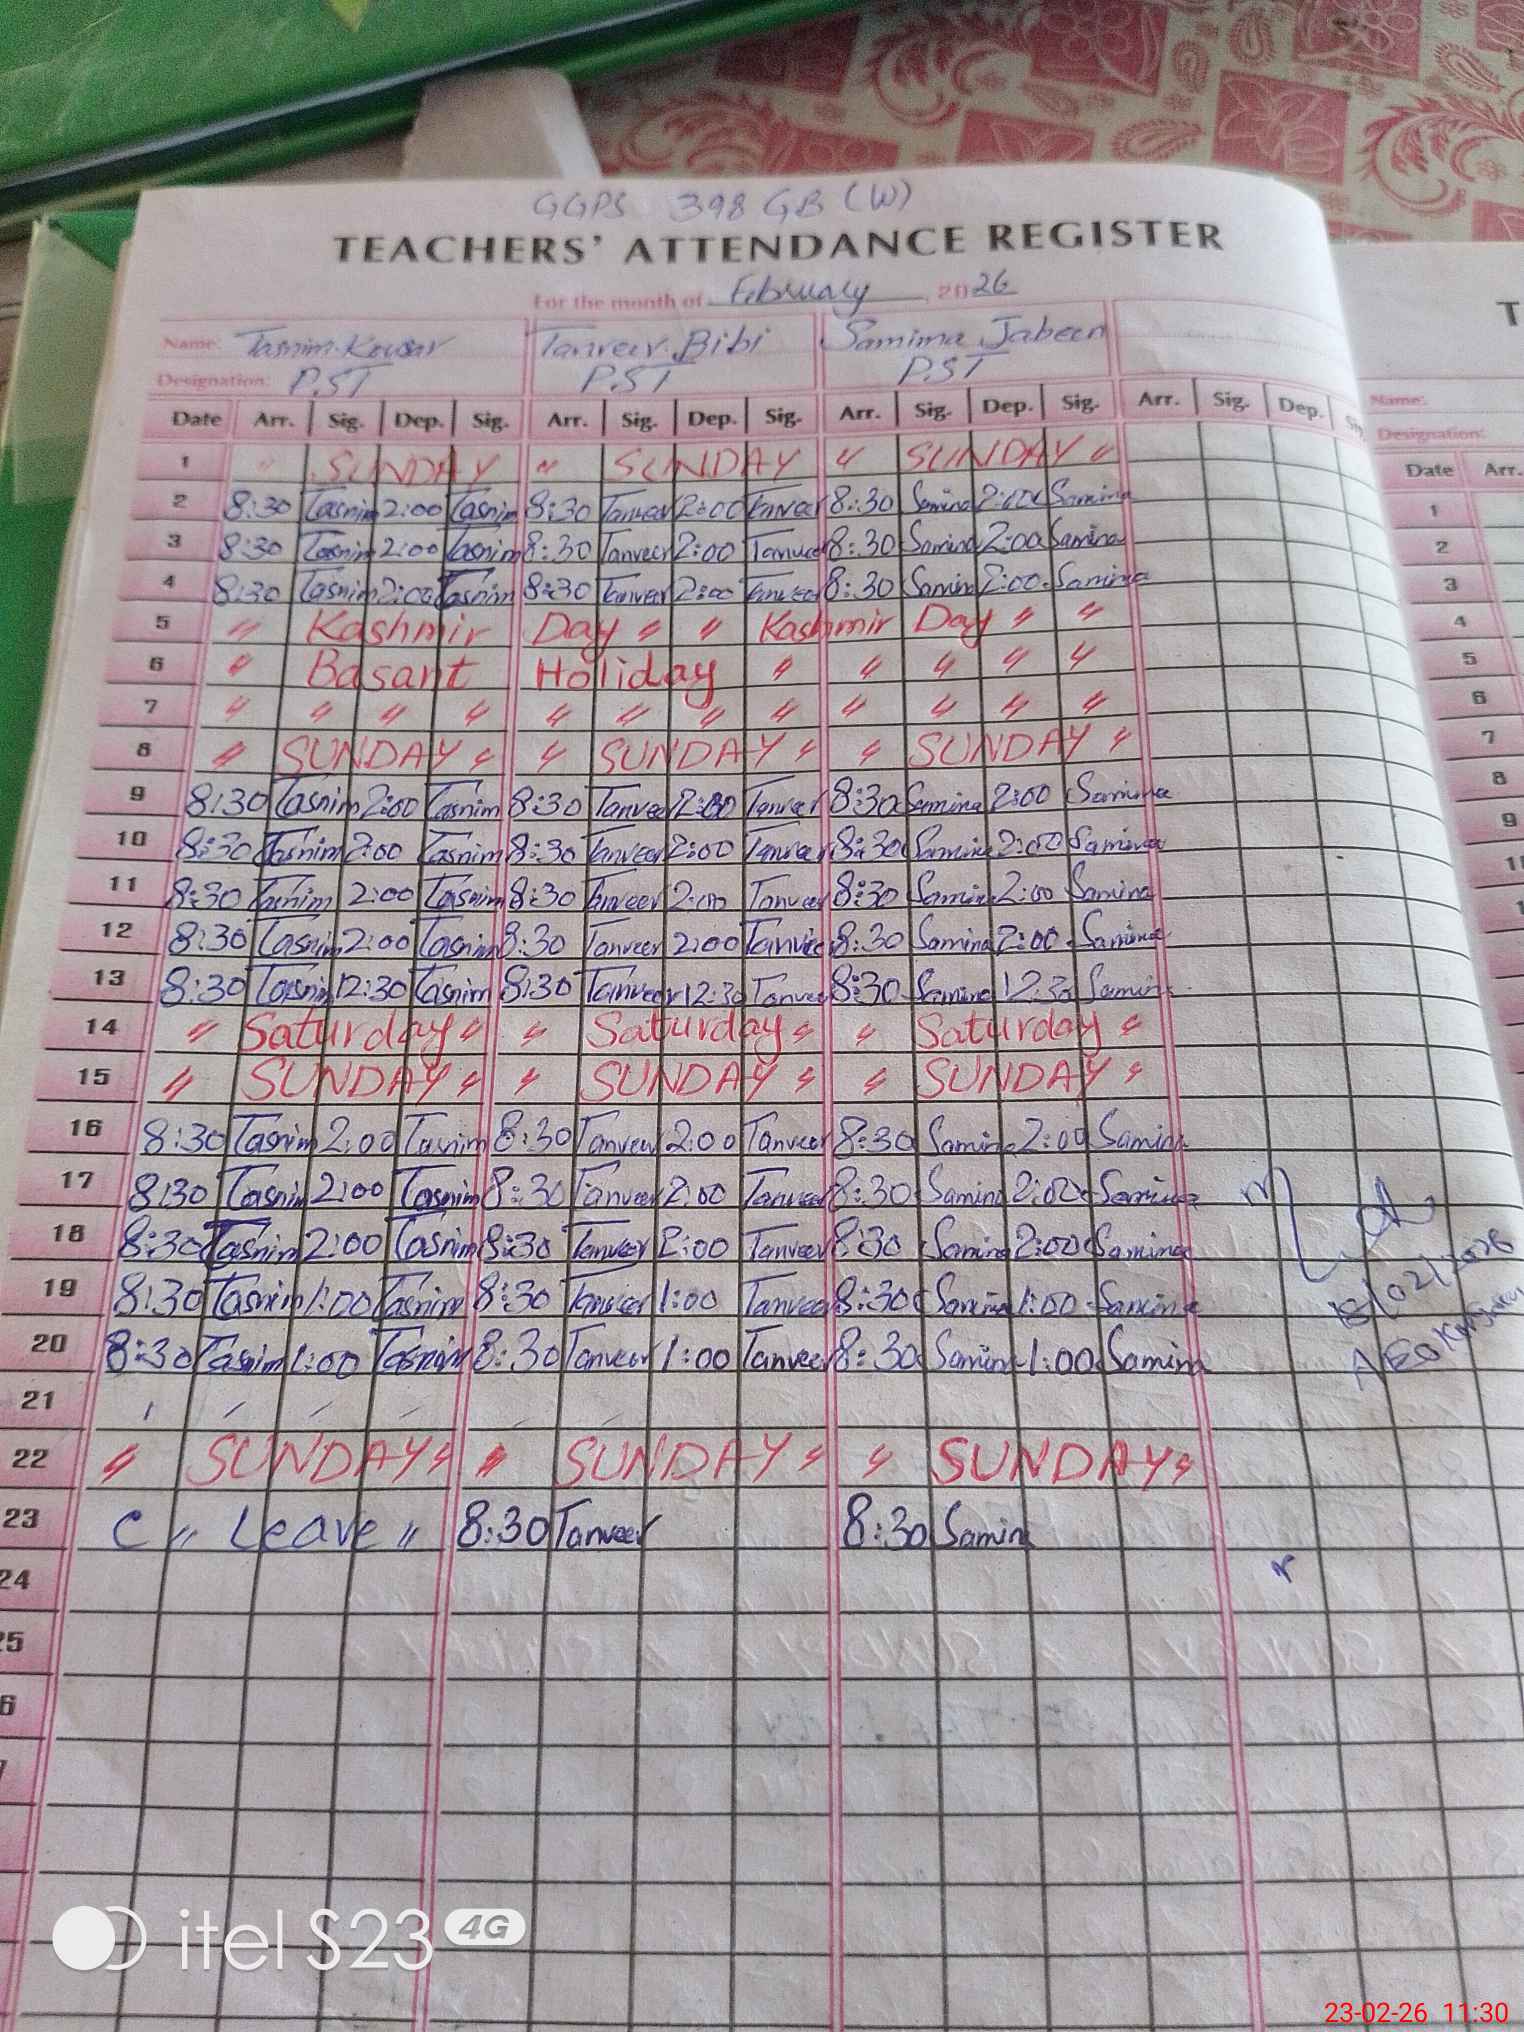 GGPS 398 GB (W)
TEACHERS' ATTENDANCE REGISTER
For the month of February, 2026
Name: Tasnim Kousar Tanveer Bibi Samina Jabeen
Designation: P.ST P.ST P.ST
Date Arr. Sig. Dep. Sig. Arr. Sig. Dep. Sig. Arr. Sig. Dep. Sig. Arr. Sig. Dep. Sig.
1 " SUNDAY " SUNDAY " SUNDAY "
2 8:30 Tasnim 2:00 Tasnim 8:30 Tanveer 2:00 Tanveer 8:30 Samina 2:00 Samina
3 8:30 Tasnim 2:00 Tasnim 8:30 Tanveer 2:00 Tanveer 8:30 Samina 2:00 Samina
4 8:30 Tasnim 2:00 Tasnim 8:30 Tanveer 2:00 Tanveer 8:30 Samina 2:00 Samina
5 " Kashmir Day " " Kashmir Day " "
6 " Basant Holiday " " " " "
7 " " " " " " " " " " " "
8 " SUNDAY " " SUNDAY " " SUNDAY "
9 8:30 Tasnim 2:00 Tasnim 8:30 Tanveer 2:00 Tanveer 8:30 Samina 2:00 Samina
10 8:30 Tasnim 2:00 Tasnim 8:30 Tanveer 2:00 Tanveer 8:30 Samina 2:00 Samina
11 8:30 Tasnim 2:00 Tasnim 8:30 Tanveer 2:00 Tanveer 8:30 Samina 2:00 Samina
12 8:30 Tasnim 2:00 Tasnim 8:30 Tanveer 2:00 Tanveer 8:30 Samina 2:00 Samina
13 8:30 Tasnim 12:30 Tasnim 8:30 Tanveer 12:30 Tanveer 8:30 Samina 12:30 Samina
14 " Saturday " " Saturday " " Saturday "
15 " SUNDAY " " SUNDAY " " SUNDAY "
16 8:30 Tasnim 2:00 Tasnim 8:30 Tanveer 2:00 Tanveer 8:30 Samina 2:00 Samina
17 8:30 Tasnim 2:00 Tasnim 8:30 Tanveer 2:00 Tanveer 8:30 Samina 2:00 Samina
18 8:30 Tasnim 2:00 Tasnim 8:30 Tanveer 2:00 Tanveer 8:30 Samina 2:00 Samina
19 8:30 Tasnim 1:00 Tasnim 8:30 Tanveer 1:00 Tanveer 8:30 Samina 1:00 Samina
20 8:30 Tasnim 1:00 Tasnim 8:30 Tanveer 1:00 Tanveer 8:30 Samina 1:00 Samina
21
22 " SUNDAY " " SUNDAY " " SUNDAY "
23 C " Leave " 8:30 Tanveer 8:30 Samina
24
25
6
/02/2026
AEO
T
Name:
Designation:
Date Arr.
1
2
3
4
5
6
7
8
9
itel S23 4G
23-02-26 11:30